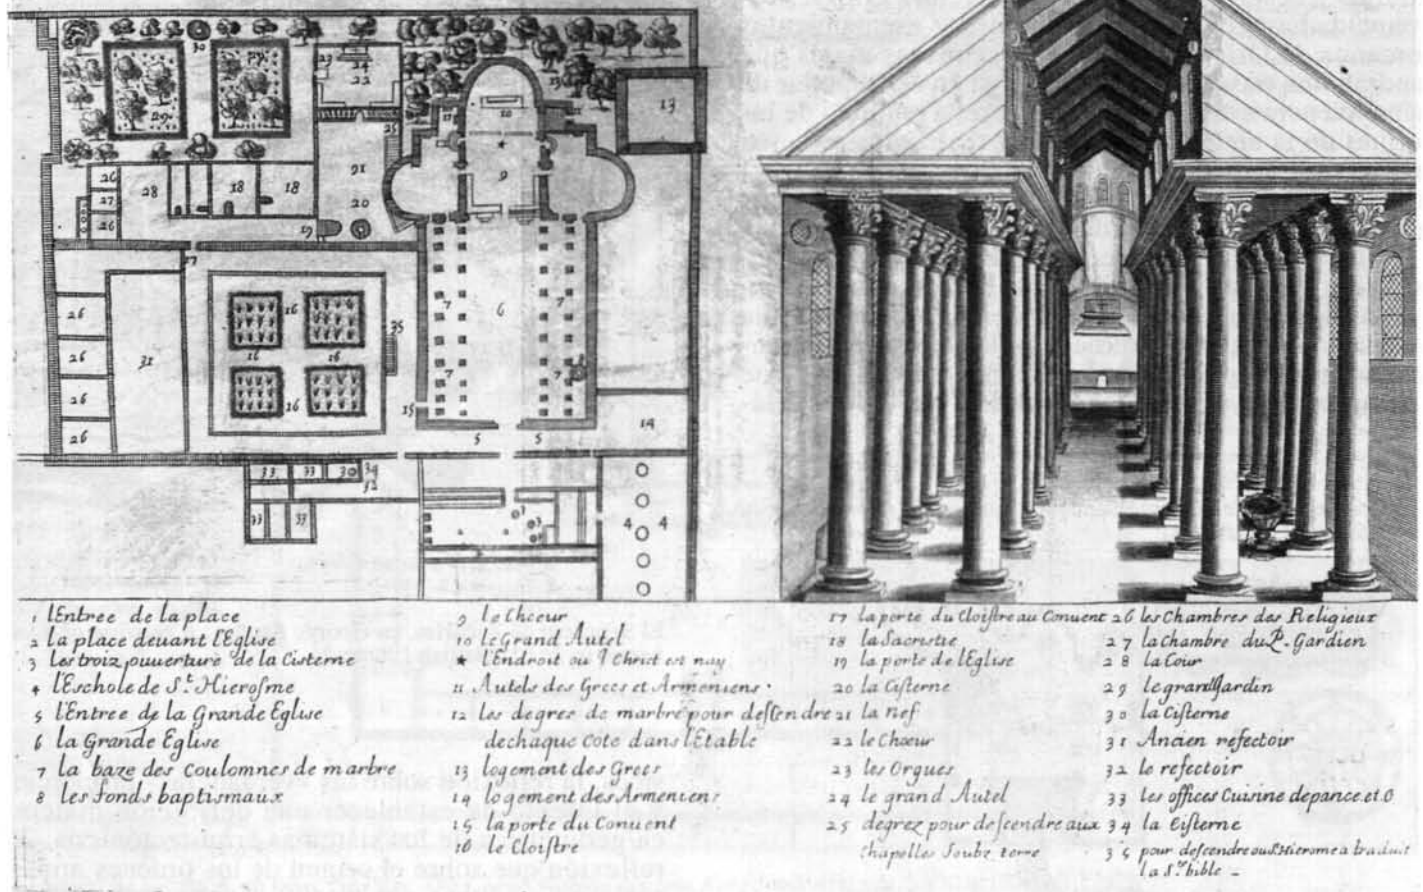 30
29
29
23
24
22
25
21
20
19
26
27
26
28
18
18
17
10
11
★
9
13
26
26
26
26
31
16
16
16
16
35
15
7
7
6
7
7
8
5
5
14
33
33
30
34
32
33
33
3
3
4
4
1 lEntree de la place
2 la place deuant l'Eglise
3 les troiz ouuerture de la Cisterne
4 l'Eschole de St. Hierosme
5 l'Entree de la Grande Eglise
6 la Grande Eglise
7 la baze des Coulomnes de marbre
8 les fonds baptismaux
9 le Choeur
10 le Grand Autel
★ l'Endroit ou I Christ est nay
11 Autels des Grecs et Armeniens.
12 les degrez de marbre pour descendre
de chaque cote dans l'Etable
13 logement des Grecs
14 logement des Armeniens
15 la porte du Conuent
16 le Cloistre
17 la porte du Cloistre au Conuent
18 la Sacrestie
19 la porte de l'Eglise
20 la Cisterne
21 la nef
22 le Choeur
23 les Orgues
24 le grand Autel
25 degrez pour descendre aux
Chapelles Soubz terre
26 les Chambres des Religieux
27 la Chambre du P. Gardien
28 la Cour
29 le grand Jardin
30 la Cisterne
31 Ancien refectoir
32 le refectoir
33 les offices Cuisine depance et O
34 la Cisterne
35 pour descendre ou St Hierome a traduit
la Ste bible -